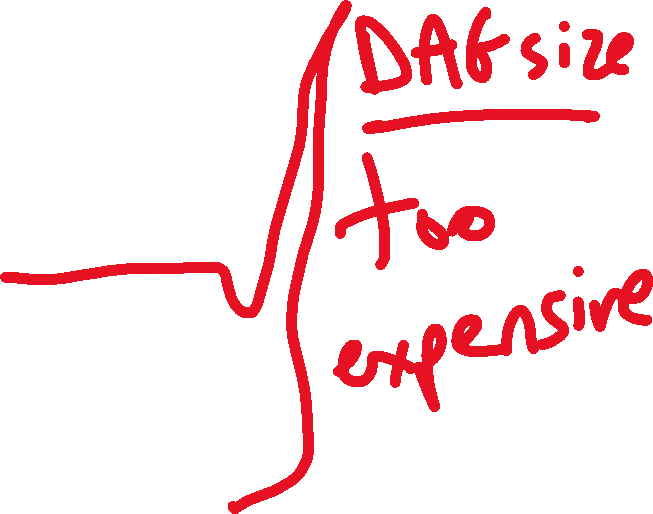 DAG size
too
expensive